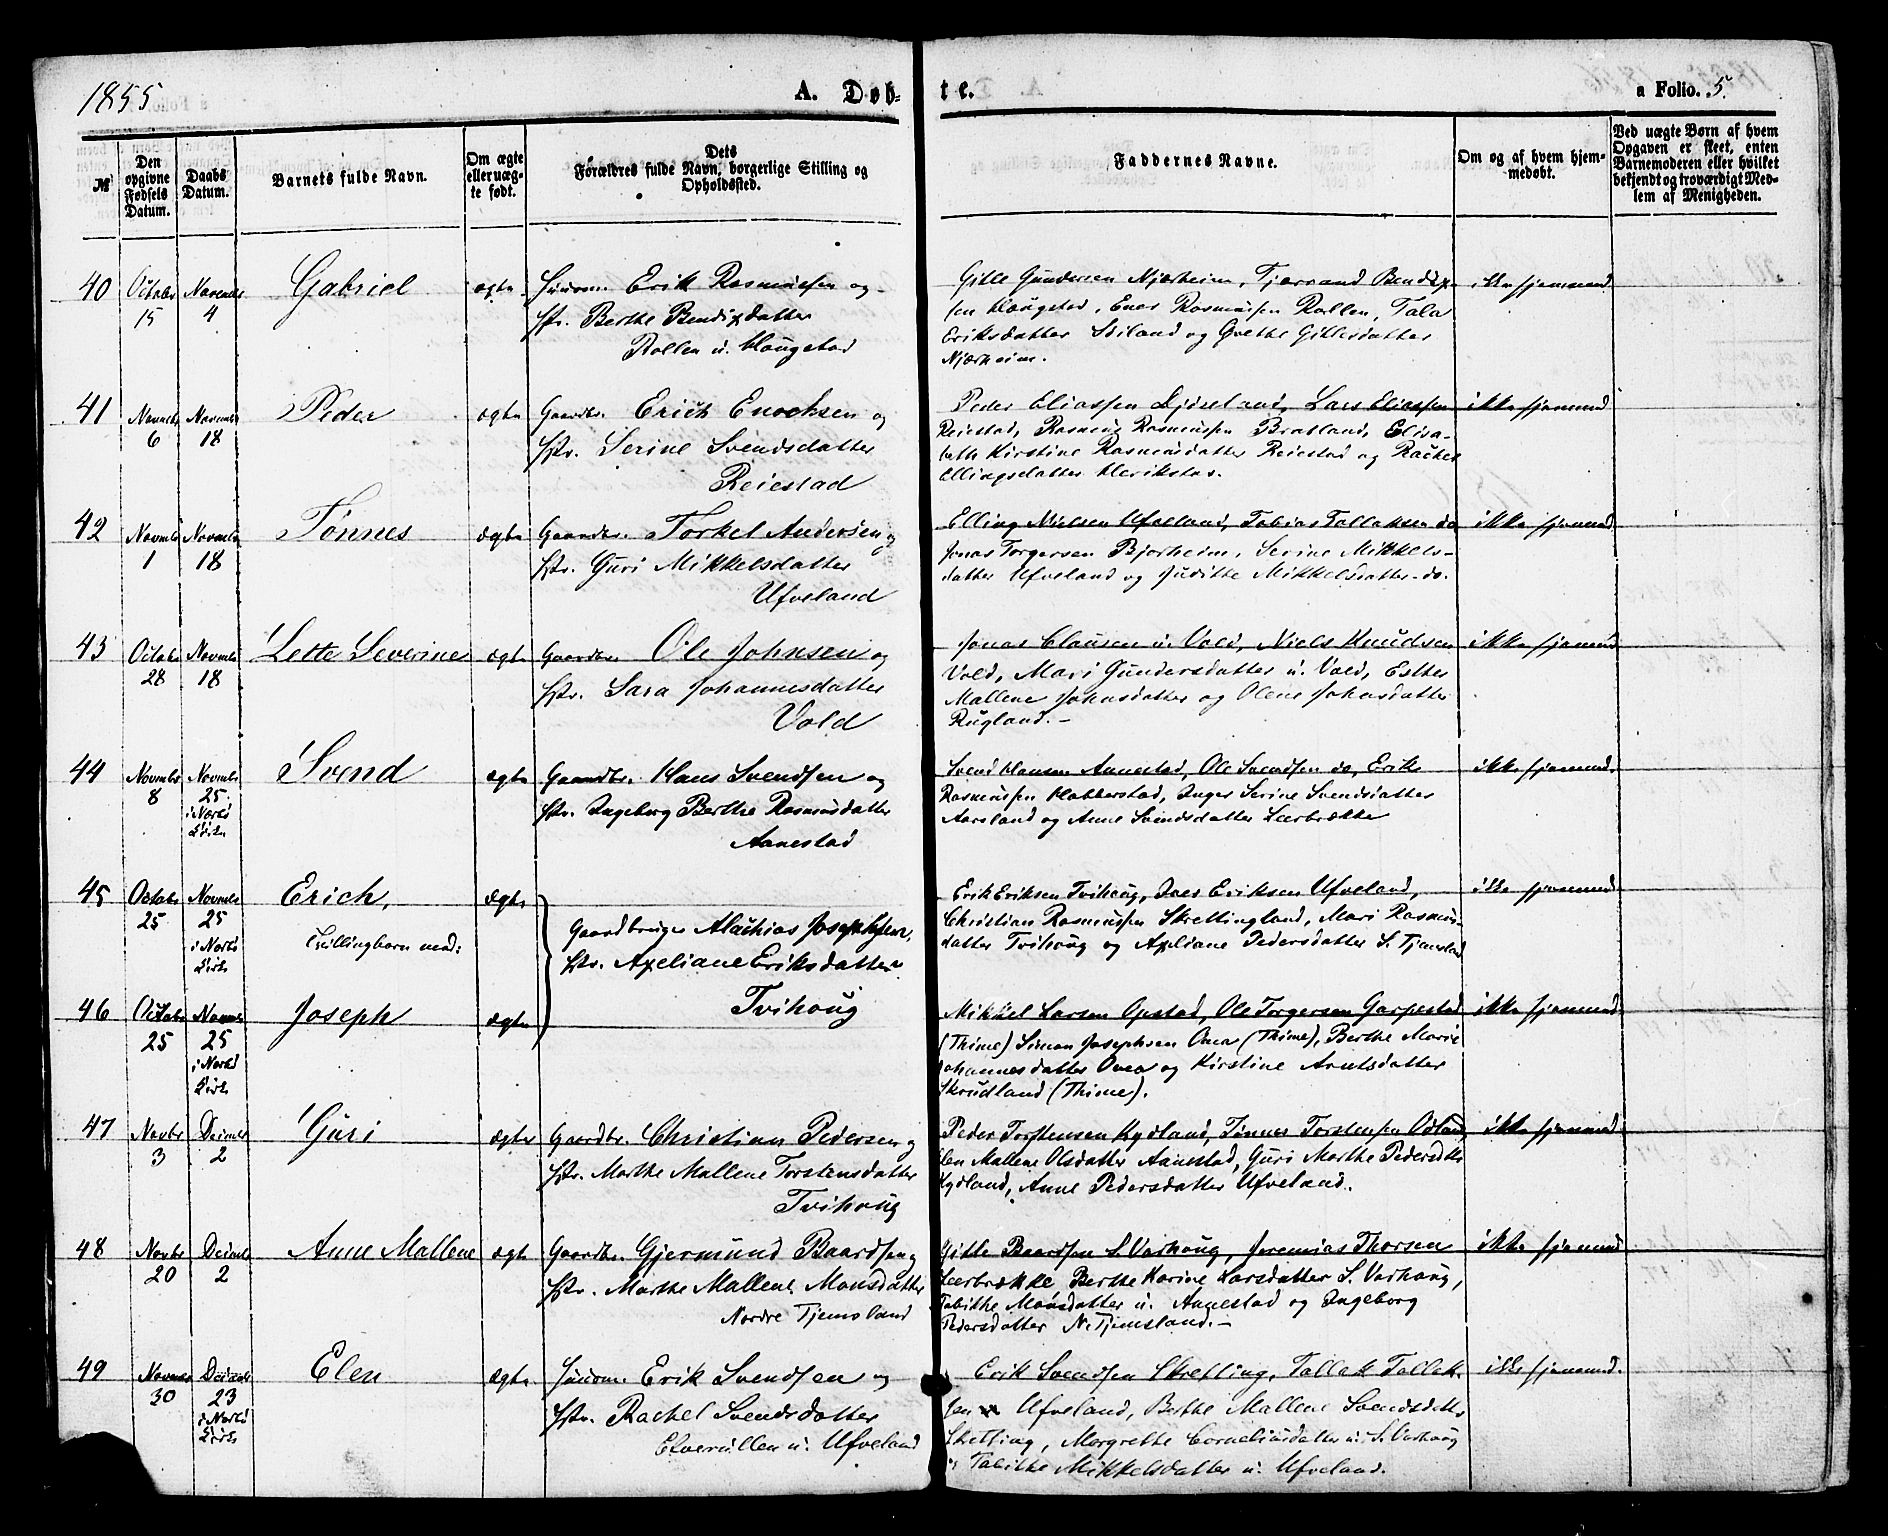 1855
A. Døb-
te.
a Folio. 5.
№
Den opgivne Fødsels Datum.
Daabs Datum.
Barnets fulde Navn.
Om ægte eller uægte født.
Dets Forældres fulde Navn, borgerlige Stilling og Opholdssted.
Faddernes Navne.
Om og af hvem hjemmedøbt.
Ved uægte Børn af hvem Opgaven er skeet, enten Barnemoderen eller hvilket bekjendt og troværdigt Medlem af Menigheden.
40
15
4
Gabriel
ægte
Erik Rasmussen og
Berthe Bendixdatter
Rollen u. Haugstad
Gitle Gundersen Njærheim, Tjærand Bendix-
sen Haugstad, Ener Rasmussen Rollen, Tala
Eriksdatter og Grethe Gitlesdatter
Njærheim.
41
6
18
Peder
ægte
Gaardbr. Erich Enochsen og
Hst. Serine Svendsdatter
Reiestad
Peder Eliassen Lars Eliassen
Reiestad, Rasmus Rasmussen Bratland, Elisa-
beth Kirstine Rasmusdatter Reiestad og Rachel
Ellingsdatter
ikke hjemmed.
42
1
18
Tønnes
ægte
Gaardbr. Torkel Andersen og
Hst. Guri Mikkelsdatter
Ufveland
Elling Nielsen Ufveland, Tobias Tallaksen do
Jonas Torgersen Bjorheim, Serine Mikkels-
datter Ufveland og Juditte Mikkelsdatter do.
ikke hjemmed.
43
28
18
Lette Severine
ægte
Gaardbr. Ole Johnsen og
Hst. Sara Johannesdatter
Vold
Jonas Clausen u. Vold, Niels Knudsen
Vold, Mari Gundersdatter u. Vold, Esther
Mallene Johnsdatter og Olene Johnsdatter
Rugland.
ikke hjemmed.
44
8
25
Svend
ægte
Gaardbr. Hans Svendsen og
Hst. Ingeborg Berthe Rasmusdatter
Aanestad
Svend Hansen Aanestad, Ole Svendsen do, Erik
Rasmussen Inger Serine Svendsdatter
Aarsland og Anne Svendsdatter Lærbrække
ikke hjemmed.
45
25
25
Erich,
Tvillingbarn med:
ægte
Gaardbruger Alachias Josephsen,
Hst. Axeliane Eriksdatter
Tvihoug
Erik Eriksen Tvihoug, Iver Eriksen Ufveland,
Christian Rasmussen Skrettingland, Mari Rasmus-
datter Tvihoug og Axeliane Pedersdatter S. Tjemsland
ikke hjemmed.
46
25
25
Joseph
ægte
Mikkel Larsen Opstad, Ole Torgersen Garpestad
(Thime) Simon Josephsen Oma (Thime), Berthe Marie
Johannesdatter og Kirstine Arntsdatter
Skrudland (Thime).
ikke hjemmed.
47
3
2
Guri
ægte
Gaardbr. Christian Pedersen og
Hst. Marthe Mallene Torstensdatter
Tvihoug
Peder Torstensen Kydland, Tønnes Torstensen
Elen Mallene Olsdatter Aanestad, Guri Marthe Pedersdtr
Kydland, Anne Pedersdatter Ufveland.
ikke hjemmed.
48
20
2
Anne Mallene
ægte
Gaardbr. Gjermund Baardsen og
Hst. Marthe Mallene Monsdatter
Nordre Tjemsland
Gitle Baardsen S. Varhoug, Jeremias Thorsen
Lærbrække Berthe Karine Larsdatter S. Varhoug,
Tabithe Monsdatter u. Aanestad og Ingeborg
Pedersdatter N. Tjemsland.
ikke hjemmed.
49
30
23
Elen
ægte
Erik Svendsen og
Hst. Rachel Svendsdatter
u. Ufveland
Erik Svendsen Skretting, Tallak Tallak-
sen Ufveland, Berthe Mallene Svendsdatter
Skretting, Margrethe Corneliusdatter u. S. Varhoug
og Tabithe Mikkelsdatter u. Ufveland.
ikke hjemmed.